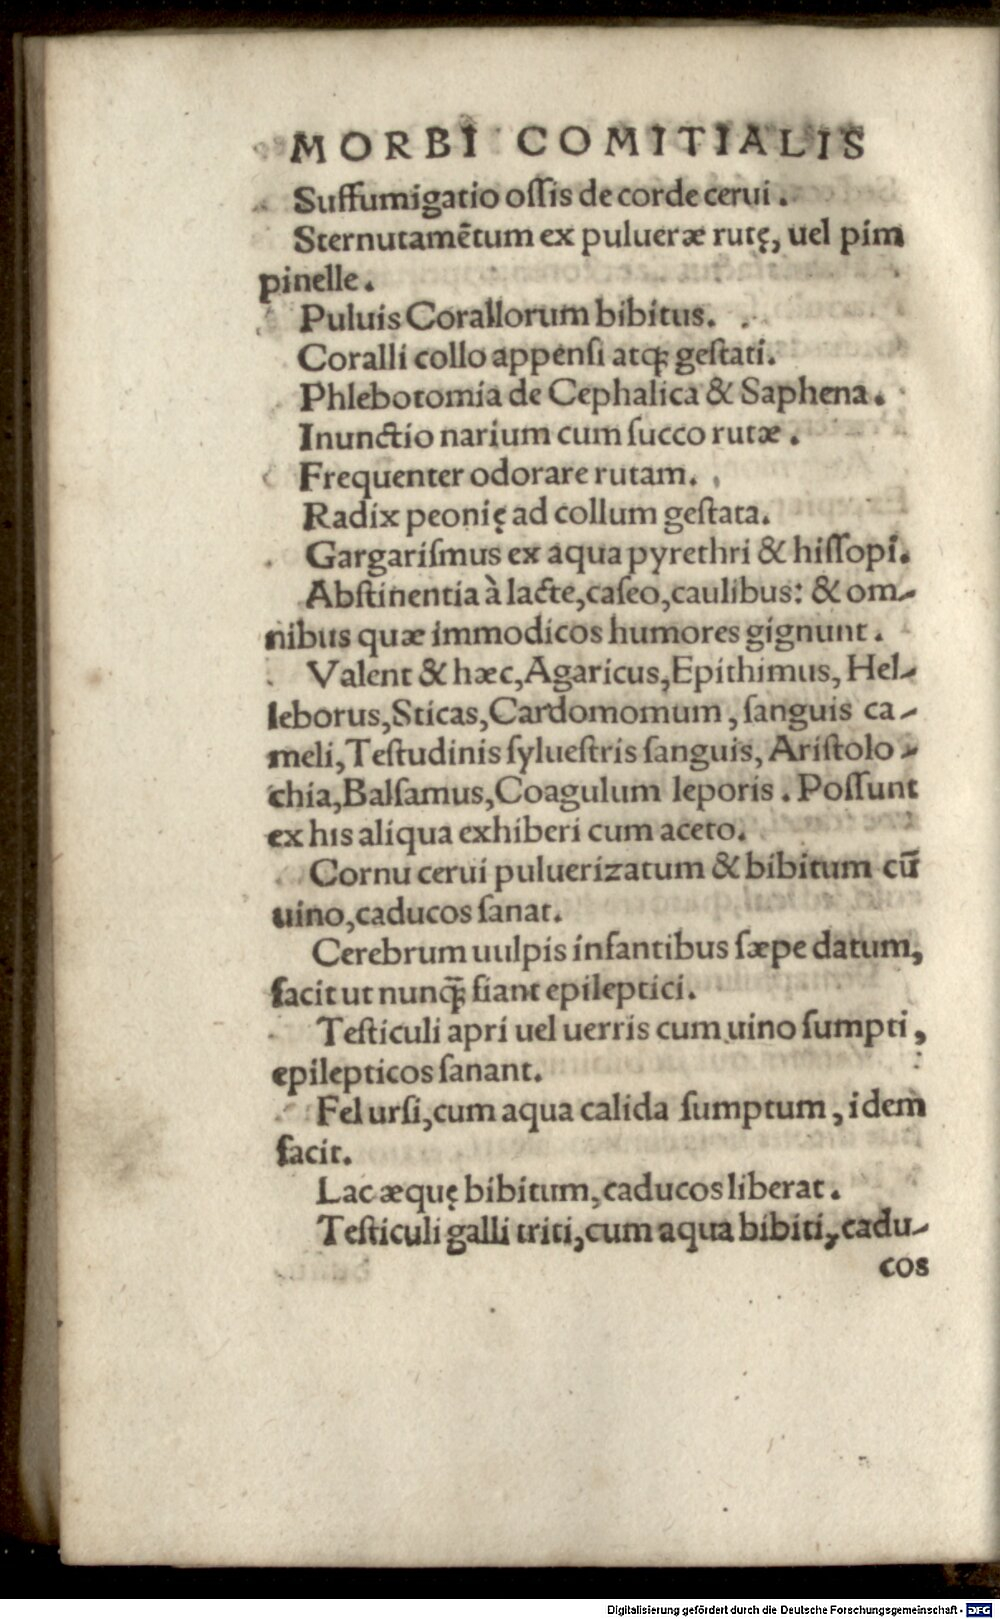 MORBI COMITIALIS
Suffumigatio oſſis de corde cerui.
Sternutamētum ex pulueræ rutę, uel pim
pinelle.
Puluis Corallorum bibitus.
Coralli collo appenſi atq; geſtati.
Phlebotomia de Cephalica & Saphena.
Inunctio narium cum ſucco rutæ.
Frequenter odorare rutam.
Radix peonię ad collum geſtata.
Gargariſmus ex aqua pyrethri & hiſſopi.
Abſtinentia à lacte, caſeo, caulibus: & om-
nibus quæ immodicos humores gignunt.
Valent & hæc, Agaricus, Epithimus, Hel-
leborus, Sticas, Cardomomum, ſanguis ca-
meli, Teſtudinis ſylueſtris ſanguis, Ariſtolo-
chia, Balſamus, Coagulum leporis. Poſſunt
ex his aliqua exhiberi cum aceto.
Cornu cerui puluerizatum & bibitum cū
uino, caducos ſanat.
Cerebrum uulpis infantibus ſæpe datum,
facit ut nunq̄; fiant epileptici.
Teſticuli apri uel uerris cum uino ſumpti,
epilepticos ſanant.
Fel urſi, cum aqua calida ſumptum, idem
facit.
Lac æquę bibitum, caducos liberat.
Teſticuli galli triti, cum aqua bibiti, cadu-
cos
Digitalisierung gefördert durch die Deutsche Forschungsgemeinschaft - DFG